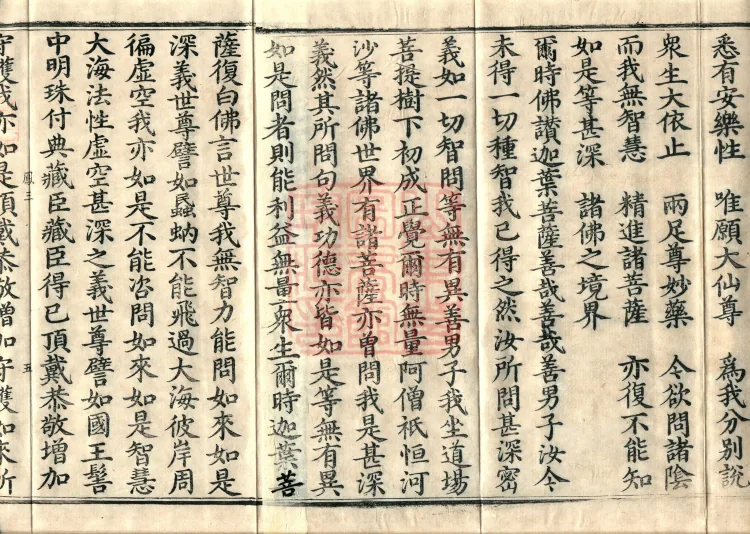 悉有安樂性　唯願大仙尊　爲我分別說
衆生大依止　兩足尊妙藥　今欲問諸陰
而我無智慧　精進諸菩薩　亦復不能知
如是等甚深　諸佛之境界
爾時佛讃迦葉菩薩善哉善哉善男子汝今
未得一切種智我已得之然汝所問甚深密
義如一切智問等無有異善男子我坐道場
菩提樹下初成正覺爾時無量阿僧祇恒河
沙等諸佛世界有諸菩薩亦曾問我是甚深
義然其所問句義功德亦皆如是等無有異
如是問者則能利益無量衆生爾時迦葉菩
薩復白佛言世尊我無智力能問如來如是
深義世尊譬如蟁蚋不能飛過大海彼岸周
徧虛空我亦如是不能咨問如來如是智慧
大海法性虛空甚深之義世尊譬如國王髻
中明珠付典藏臣藏臣得已頂戴恭敬增加
鳳三　五
守護我亦如是頂戴恭敬增加守護如來所